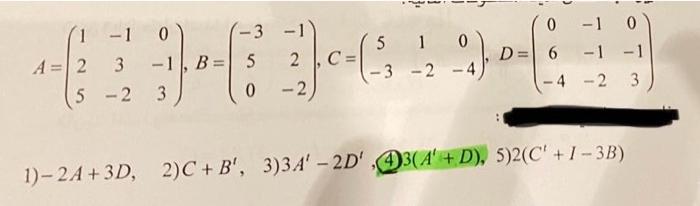 A = (1 -1 0; 2 3 -1; 5 -2 3), B = (-3 -1; 5 2; 0 -2), C = (5 1 0; -3 -2 -4), D = (0 -1 0; 6 -1 -1; -4 -2 3)
:
1) -2A + 3D, 2)C + B', 3)3A' - 2D' , 4)3(A' + D), 5)2(C' + I - 3B)